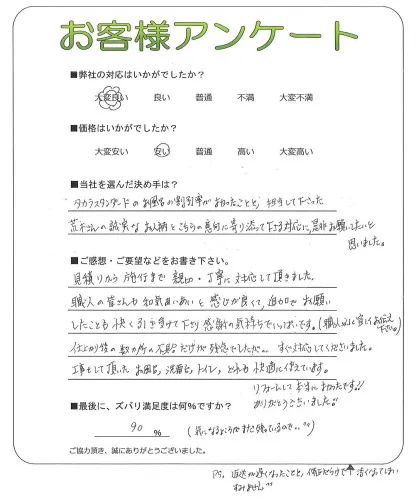 お客様アンケート
■弊社の対応はいかがでしたか?
大変良い 良い 普通 不満 大変不満
■価格はいかがでしたか?
大変安い 安い 普通 高い 大変高い
■当社を選んだ決め手は?
タカラスタンダードのお風呂の割引率が良かったことと、担当して下さった
さんの誠実なお人柄とこちらの意向に寄り添って下さる対応に、是非お願いしたいと
思いました。
■ご感想・ご要望などをお書き下さい。
見積りから施行まで親切・丁寧に対応して頂きました。
職人の皆さんも和気あいあいと感じが良くて、追加でお願い
したことも快く引き受けて下さり感謝の気持ちでいっぱいです。(職人さんに宜しくお伝え
下さい。)
仕上り後の数か所の不具合だけが残念でしたが、すぐ対応してくださいました。
工事をして頂いたお風呂、洗面台、トイレ、どれも快適に使えています。
リフォームして本当に良かったです!!
ありがとうございました!!
■最後に、ズバリ満足度は何%ですか?
90 % (気になるところがまだ残っているので。)
ご協力頂き、誠にありがとうございました。
PS. 返送が遅くなったことと、
すみません